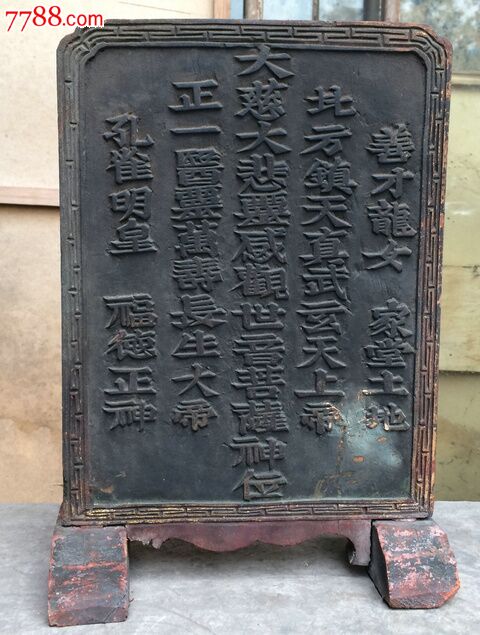 7788.com
善才龍女 家堂土地
北方鎮天真武玄天上帝
大慈大悲聖感觀世音菩薩神位
正一醫靈萬壽長生大帝
孔雀明皇 福德正神